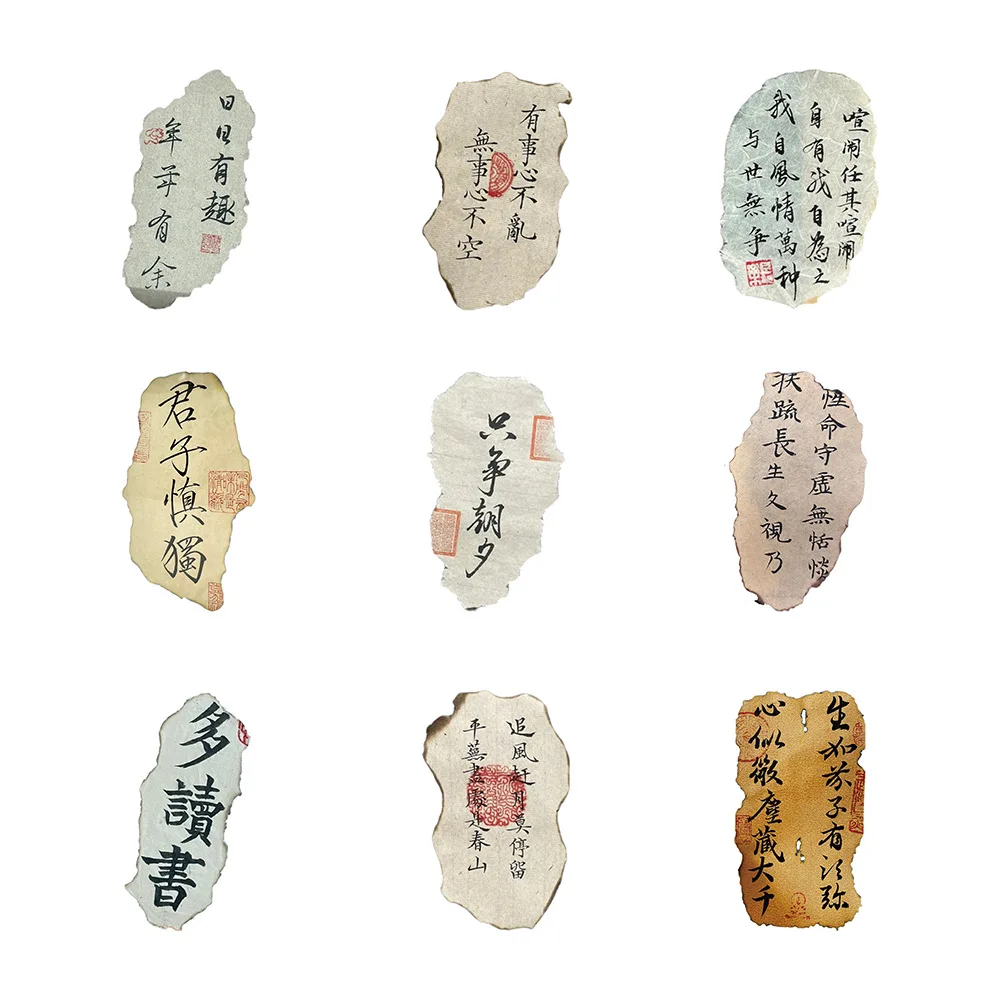 日日有趣
年年有余
有事心不亂
無事心不空
喧闹任其喧闹
自有我自為之
我自風情萬种
与世無争
君子慎獨
只争朝夕
性命守虛無恬惔
扶疏長生久視乃
多讀書
追風赶月莫停留
平蕪盡處是春山
生如芥子有須弥
心似微塵藏大千